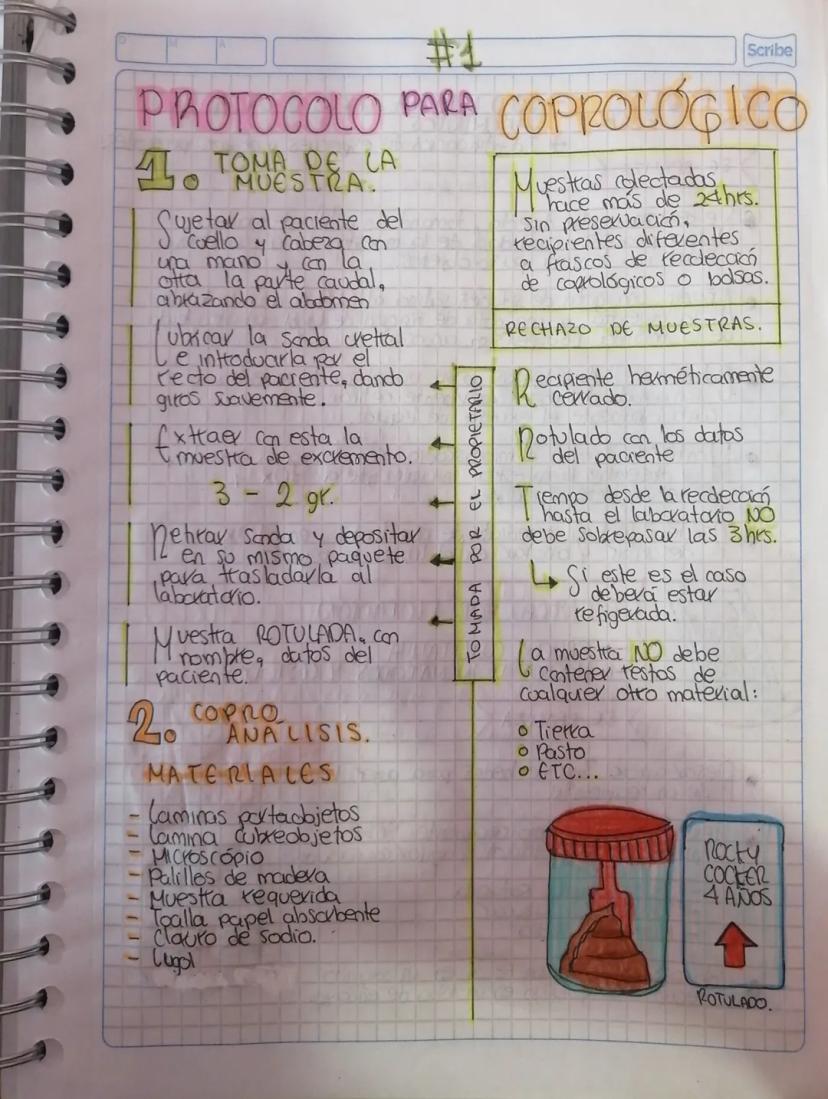 D M A
#1
Scribe
PROTOCOLO PARA COPROLÓGICO
1. TOMA DE LA
MUESTRA.
Sujetar al paciente del
cuello y cabeza con
una mano y con la
otra la parte caudal,
abrazando el abdomen
Lubricar la sonda uretral
e introducirla por el
recto del paciente, dando
giros suavemente.
Extraer con esta la
muestra de excremento.
3 - 2 gr.
Retirar sonda y depositar
en su mismo paquete
para trasladarla al
laboratorio.
Muestra ROTULADA, con
nombre, datos del
paciente.
2. COPRO
ANALISIS.
MATERIALES
- Laminas portaobjetos
- Lamina cubreobjetos
- Microscópio
- Palillos de madera
- Muestra requerida
- Toalla papel absorbente
- Cloruro de sodio.
- Lugol
TOMADA POR EL PROPIETARIO
Muestras colectadas
hace más de 24hrs.
sin preservación,
recipientes diferentes
a frascos de recolección
de coprológicos o bolsas.
RECHAZO DE MUESTRAS.
Recipiente herméticamente
cerrado.
Rotulado con los datos
del paciente
Tiempo desde la recolección
hasta el laboratorio NO
debe sobrepasar las 3hrs.
Si este es el caso
deberá estar
refigerada.
La muestra NO debe
contener restos de
cualquier otro material:
o Tierra
o Pasto
o ETC...
ROCKY
COCKER
4 AÑOS
ROTULADO.